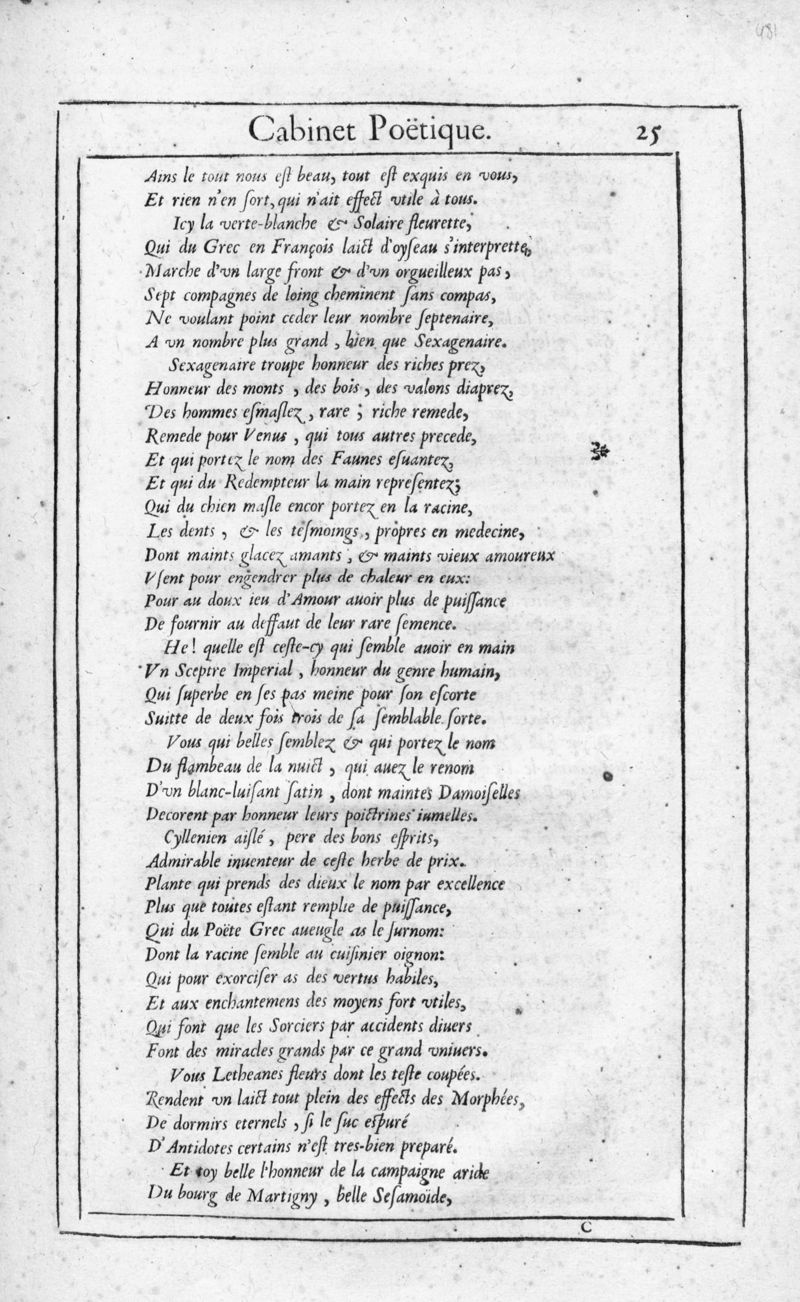 Cabinet Poëtique. 25
Ains le tout nous est beau, tout est exquis en vous,
Et rien n'en sort, qui n'ait effect vtile à tous.
Icy la verte-blanche & Solaire fleurette,
Qui du Grec en François laict d'oyseau s'interprette,
Marche d'vn large front & d'vn orgueilleux pas,
Sept compagnes de loing cheminent sans compas,
Ne voulant point ceder leur nombre septenaire,
A vn nombre plus grand, bien que Sexagenaire.
Sexagenaire troupe honneur des riches prez,
Honneur des monts, des bois, des valons diaprez,
Des hommes esmaslez, rare ; riche remede,
Remede pour Venus, qui tous autres precede,
Et qui portez le nom des Faunes esuantez,
Et qui du Redempteur la main representez;
Qui du chien masle encor portez en la racine,
Les dents, & les tesmoings, propres en medecine,
Dont maints glacez amants, & maints vieux amoureux
Vsent pour engendrer plus de chaleur en eux:
Pour au doux ieu d'Amour auoir plus de puissance
De fournir au deffaut de leur rare semence.
He! quelle est ceste-cy qui semble auoir en main
Vn Sceptre Imperial, honneur du genre humain,
Qui superbe en ses pas meine pour son escorte
Suitte de deux fois trois de sa semblable sorte.
Vous qui belles semblez & qui portez le nom
Du flambeau de la nuict, qui auez le renom
D'vn blanc-luisant satin, dont maintes Damoiselles
Decorent par honneur leurs poictrines iumelles.
Cyllenien aislé, pere des bons esprits,
Admirable inuenteur de ceste herbe de prix.
Plante qui prends des dieux le nom par excellence
Plus que toutes estant remplie de puissance,
Qui du Poëte Grec aueugle as le surnom:
Dont la racine semble au cuisinier oignon:
Qui pour exorciser as des vertus habiles,
Et aux enchantemens des moyens fort vtiles,
Qui font que les Sorciers par accidents diuers
Font des miracles grands par ce grand vniuers.
Vous Letheanes fleurs dont les teste coupées.
Rendent vn laict tout plein des effects des Morphées,
De dormirs eternels, si le suc espuré
D'Antidotes certains n'est tres-bien preparé.
Et toy belle l'honneur de la campaigne aride
Du bourg de Martigny, belle Sesamoïde,
C